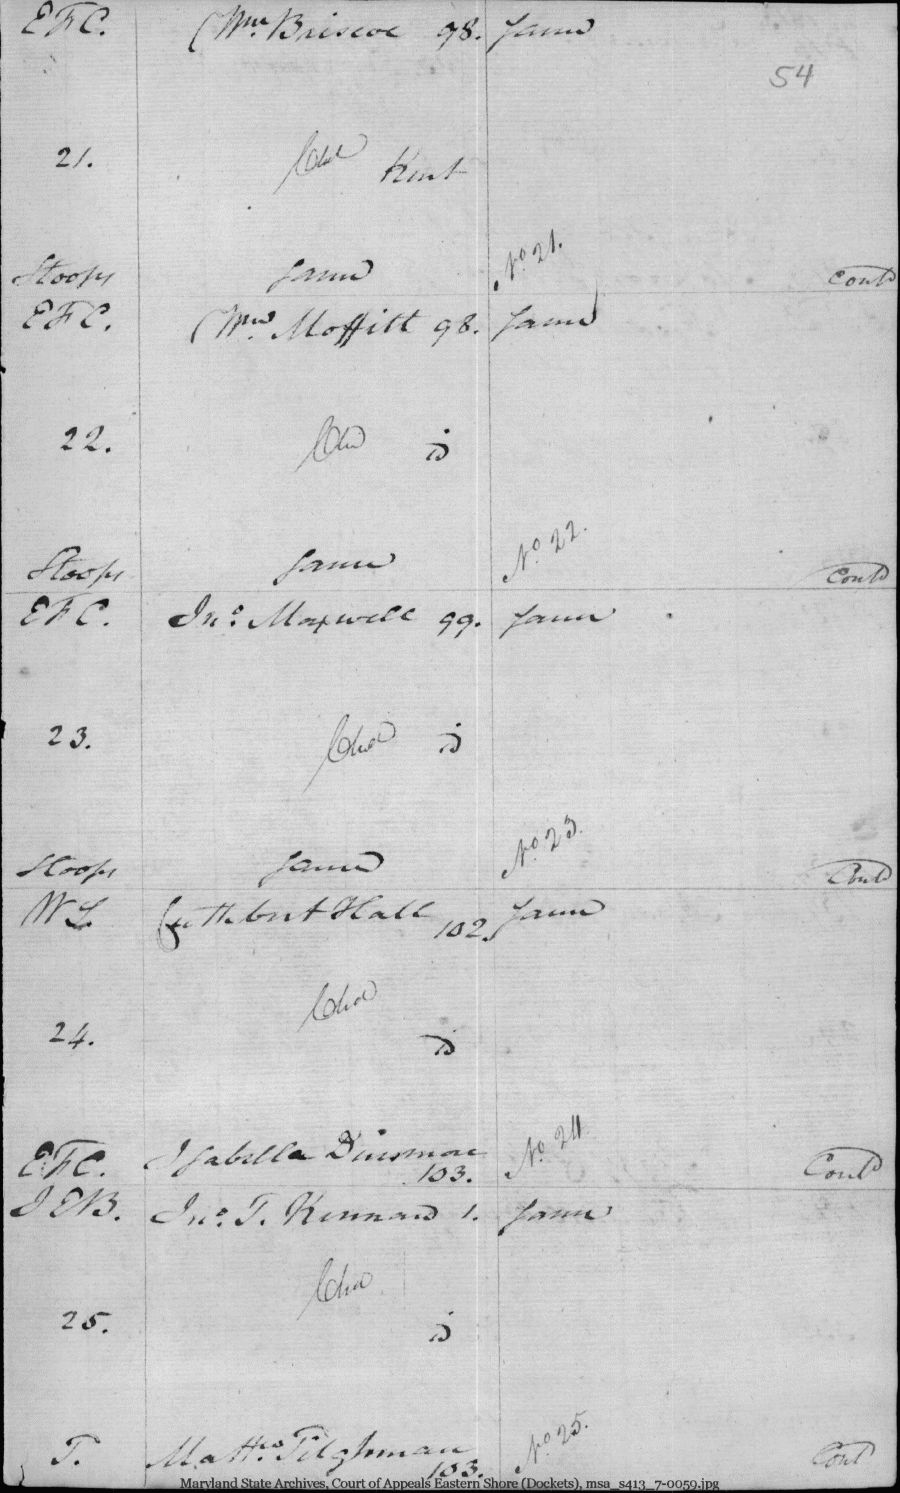 EFC. (Wm. Briscoe 98. Same
54
21. Chd Kent
Stoops Same No. 21. Contd
EFC. (Wm. Moffitt 98. Same
22. Chd D
Stoops Same No. 22. Contd
EFC. Jno. Maxwell 99. Same
23. Chd D
Stoops Same No. 23. Contd
WS. Cuthbert Hall 102. Same
24. Chd D
EFC. Isabella Dinsmore 103. No. 24 Contd
JEB. Jno. T. Kennard 1. Same
25. Chd D
T. Matths Tilghman 103. No. 25. Contd
Maryland State Archives, Court of Appeals Eastern Shore (Dockets), msa_s413_7-0059.jpg